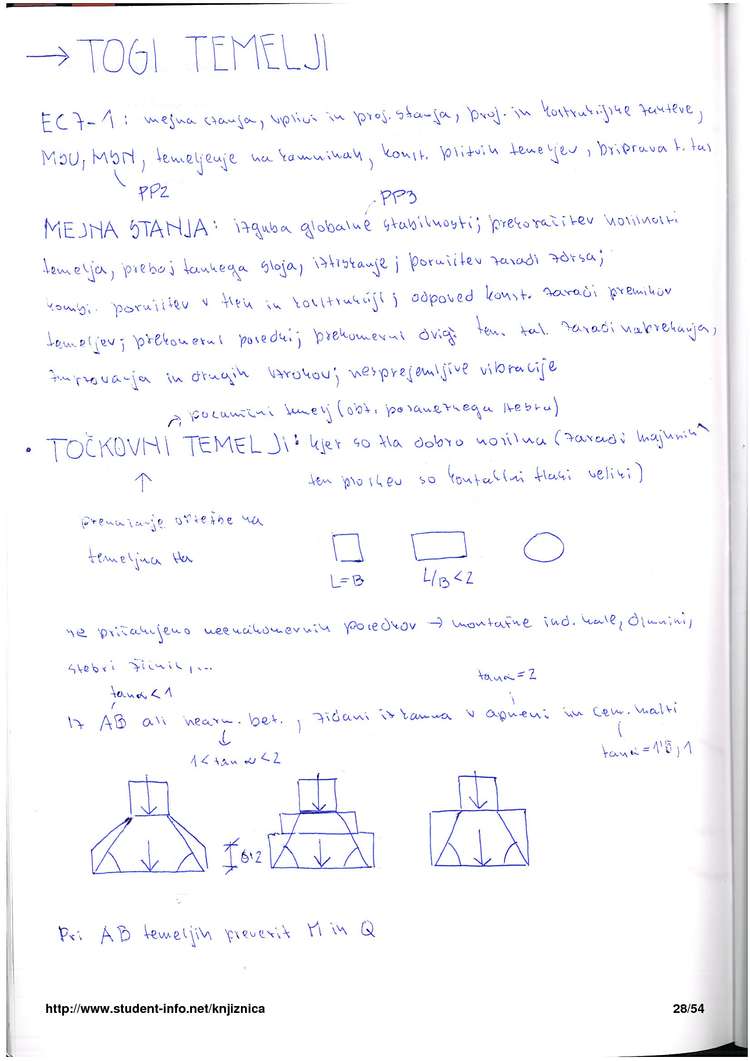 → TOGI TEMELJI
EC7-1: mejna stanja, vplivi in proj. stanja, proj. in konstrukcijske zahteve,
MSU, MSN, temeljenje na kamninah, konst. plitvih temeljev, priprava t. tal
PP2
PP3
MEJNA STANJA: izguba globalne stabilnosti; prekoračitev nosilnosti
temelja, preboj tankega sloja, iztiskanje; porušitev zaradi zdrsa;
kombi. porušitev v tleh in konstrukciji; odpoved konst. zaradi premikov
temeljev; prekomerni posedki; prekomerni dvigi tem. tal. zaradi nabrekanja,
zmrzovanja in drugih vzrokov; nesprejemljive vibracije
→ posamični temelj (obt. posameznega stebra)
• TOČKOVNI TEMELJI: kjer so tla dobro nosilna (zaradi majhnih
tem ploskev so kontaktni tlaki veliki)
↑
prenašanje obtežbe na
temeljna tla
L=B
L/B<2
ne pričakujemo neenakomernih posedkov → montažne ind. hale, dimniki,
stebri žičnic,...
tanα<1
tanα=2
Iz AB ali nearm. bet., zidani iz kamna v apneni in cem. malti
↓
1<tanα<2
tanα=1'5,1
0'2
Pri AB temeljih preverit M in Q
http://www.student-info.net/knjiznica
28/54